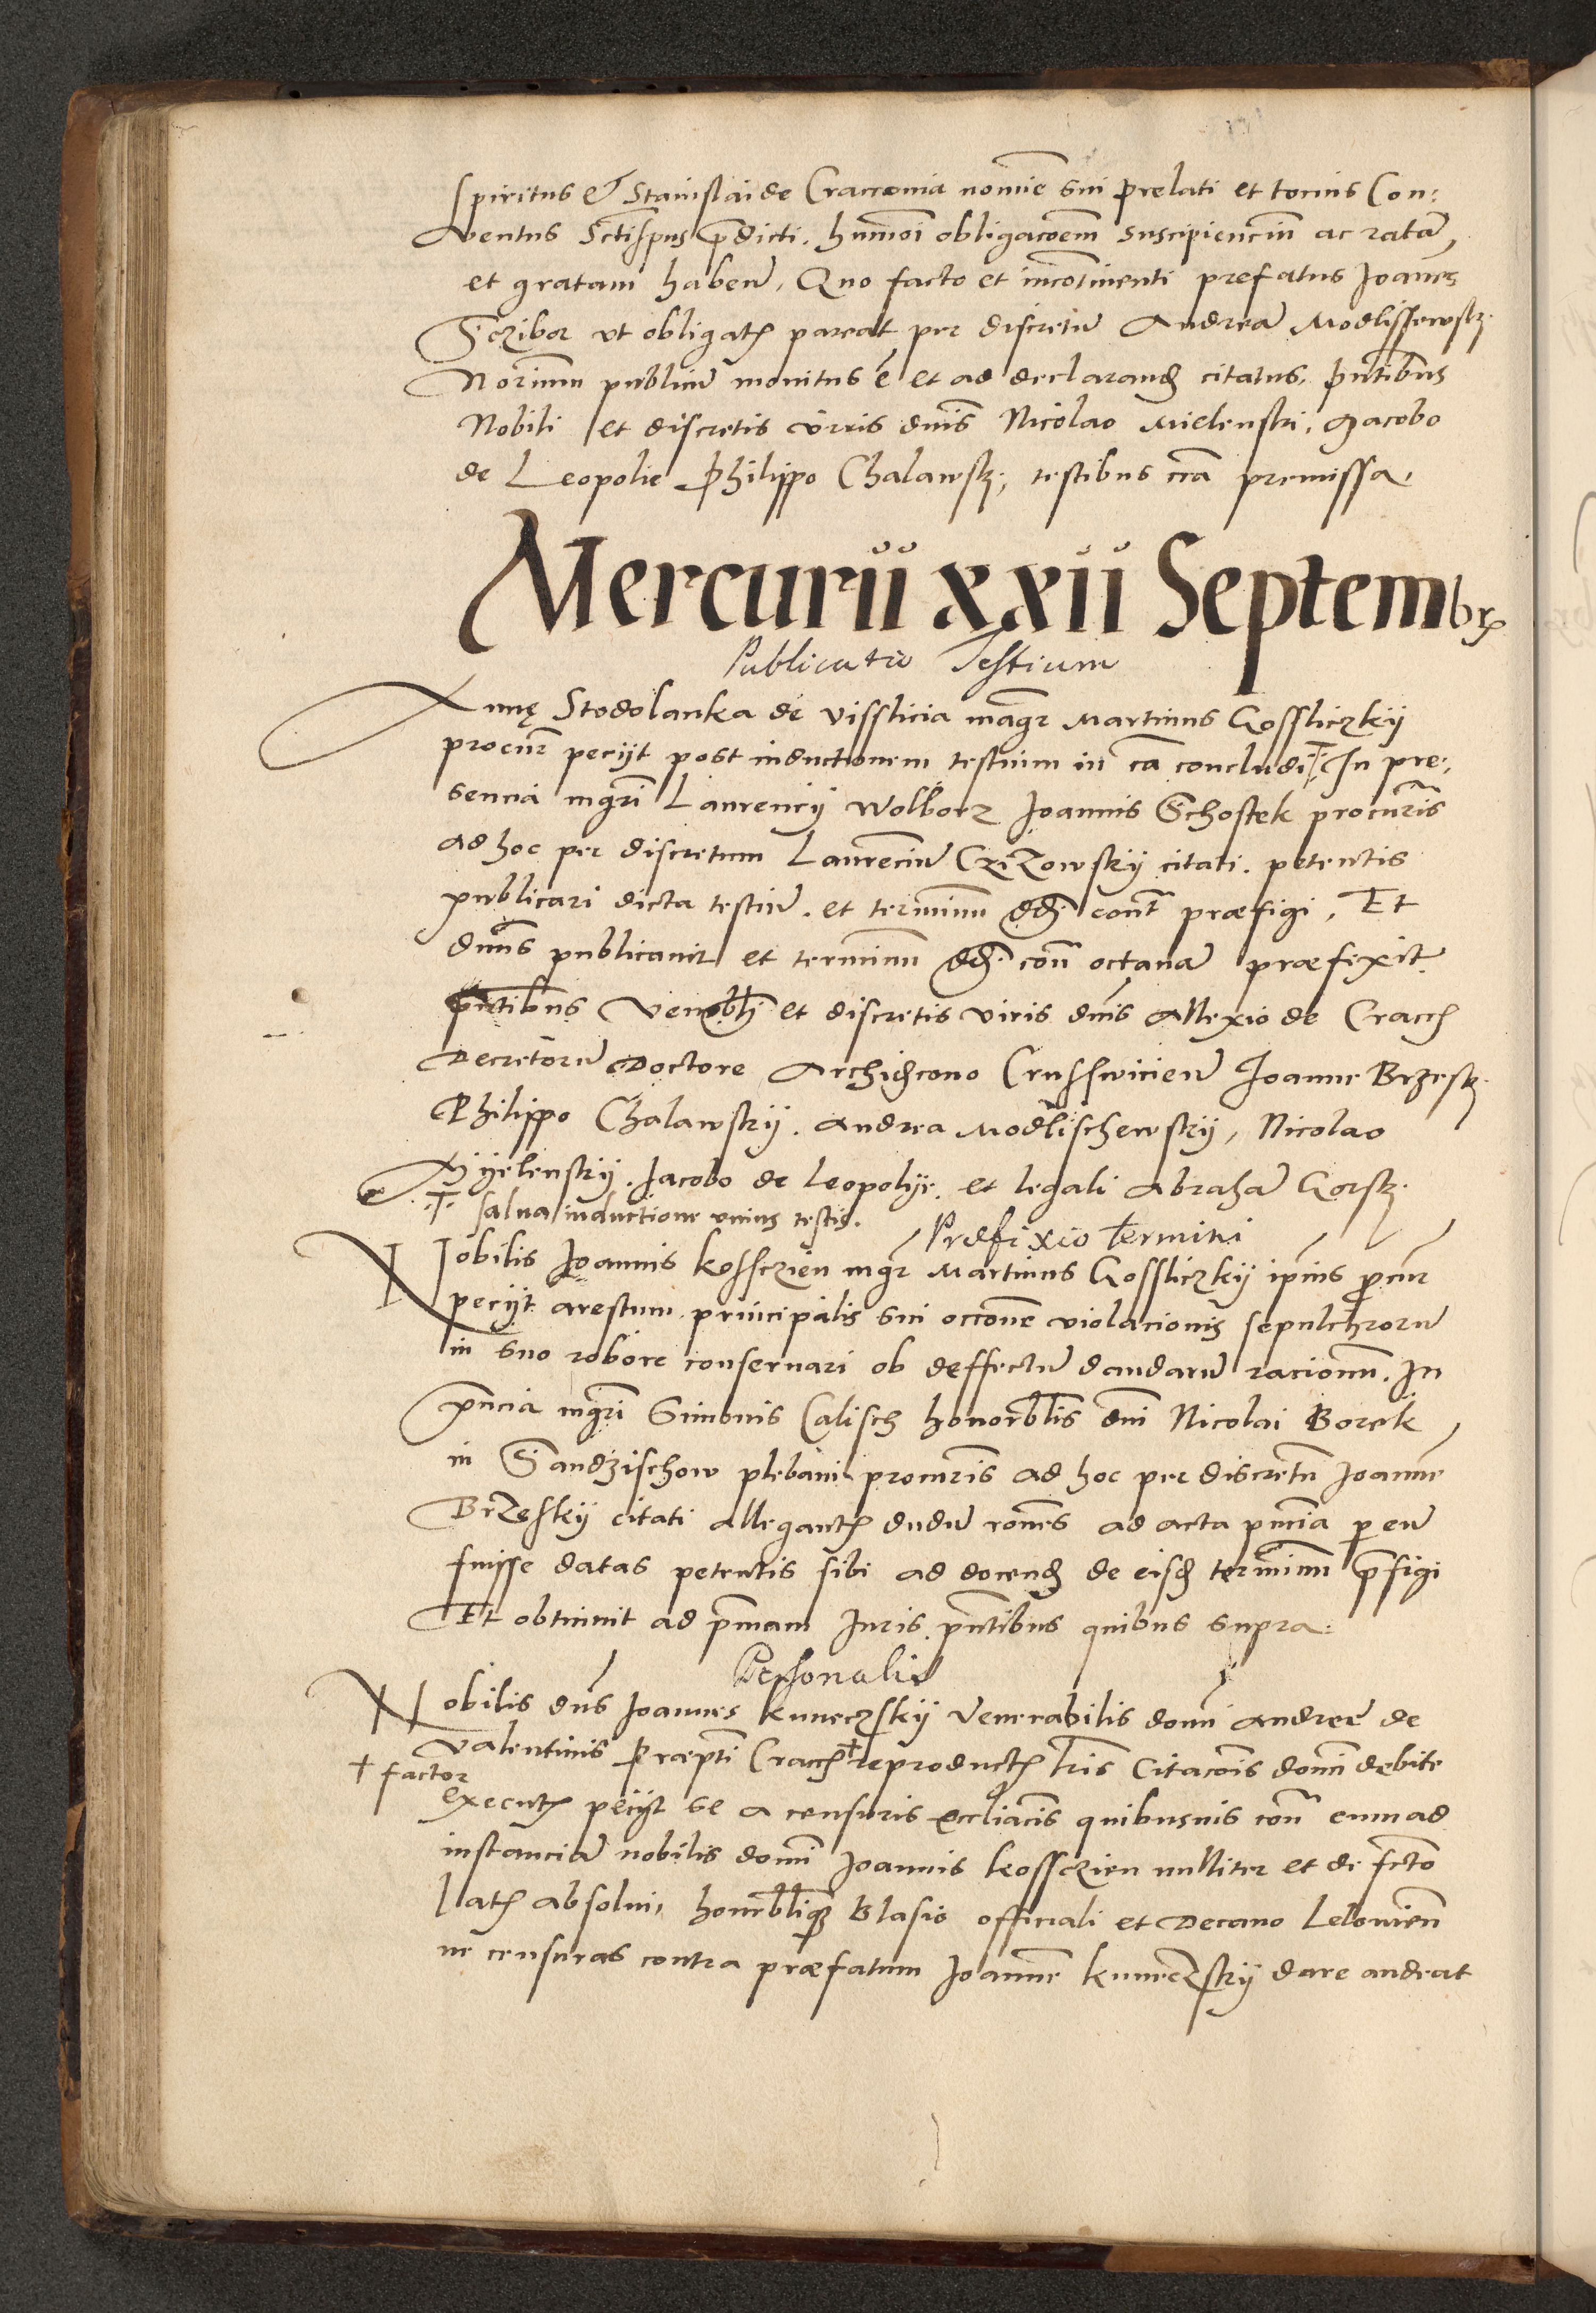 spiritus et Stanislai de Cracouia nomie sui prelati et tocius Con:
ventus Sctispus pdicti. humoi obligacoem suscipiencium ac ratam
et gratam haben. Quo facto et incotinenti prefatus Joanes
Sczibor ut obligatus pareat per discretu Andrea Modlissewsky
Norium publicu monitus e et ad declarand citatus. pntibus
Nobili et discretis viris dnis Nicolao Mielenski, Jacobo
de Leopolie Philippo Chalawsky, testibus cca premissa.
Mercurii xxii Septembr
Publicatio Testium
Annę Stodolanka de Visslicia magr Martinus Gossliczkij
procur pecijt post inductionem testium in ca concludi In pre,
sencia mgri Laurencij Wolborz Joannis Schostek procuris
ad hoc per discretum Laurenciu Czizowskij citati. petentis
publicari dicta testiu. et terminum dd cont præfigi, Et
dnus publicauit et terminum dd con octaua præfixit
pntibus Venerabli et discretis viris dnis Allexio de Cracc
Decretoru Doctore Archidcono Crusswicien Joanne Brzesky
Philippo Chalawskij. Andrea Modlischewskij, Nicolao
Myelenskij. Jacobo de Leopolije. et legali Abraha Gorsky
salua inductione unius testis.
Præfixio termini
Nobilis Joannis Kossczien mgr Martinus Gossliczkij ipius pcur
pecijt arestum principalis sui occone violacionis sepulchroru
in suo robore conseruari ob deffectu dandaru racionum. In
pncia mgri Simonis Calisch honorblis dni Nicolai Borek
in Sandzischow plebani procuris ad hoc per discretu Joanne
Brzeskij citati allegantis dudu rones ad acta pncia p eu
fuisse datas petentis sibi ad docend de eisd terminum pfigi
Et obtinuit ad pmam Juris. pntibus quibus supra:
Personalis
Nobilis dns Joannes Kuneczskij Venerabilis domi Andree de
Valentinis Præpti Cracc † reproductis lris Citacois domi debite
† factor
executis pecijt se a censuris eccliacis quibusuis con eum ad
instancia nobilis domi Joannis Kossczien nulliter et de fcto
latis absolui, honorbliq Blasio officiali et Decano Lelouien
ne censuras contra præfatum Joanne Kuneczskij dare audeat